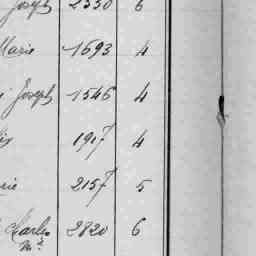 Joseph 2330 6
Marie 1693 4
Joseph 1546 4
1917 4
rie 2157 5
Charles 2820 6
Mce